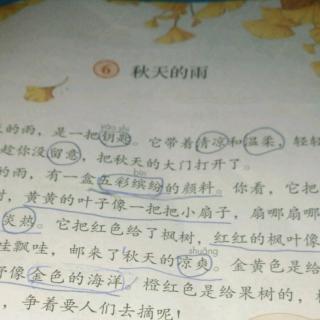 6 秋天的雨
yào shi
的雨，是一把钥匙。它带着清凉和温柔，轻轻
趁你没留意，把秋天的大门打开了。
bīn
的雨，有一盒五彩缤纷的颜料。你看，它把
，黄黄的叶子像一把把小扇子，扇哪扇哪
炎热。它把红色给了枫树，红红的枫叶像
shuǎng
哇飘哇，邮来了秋天的凉爽。金黄色是给
像金色的海洋。橙红色是给果树的，
，争着要人们去摘呢！